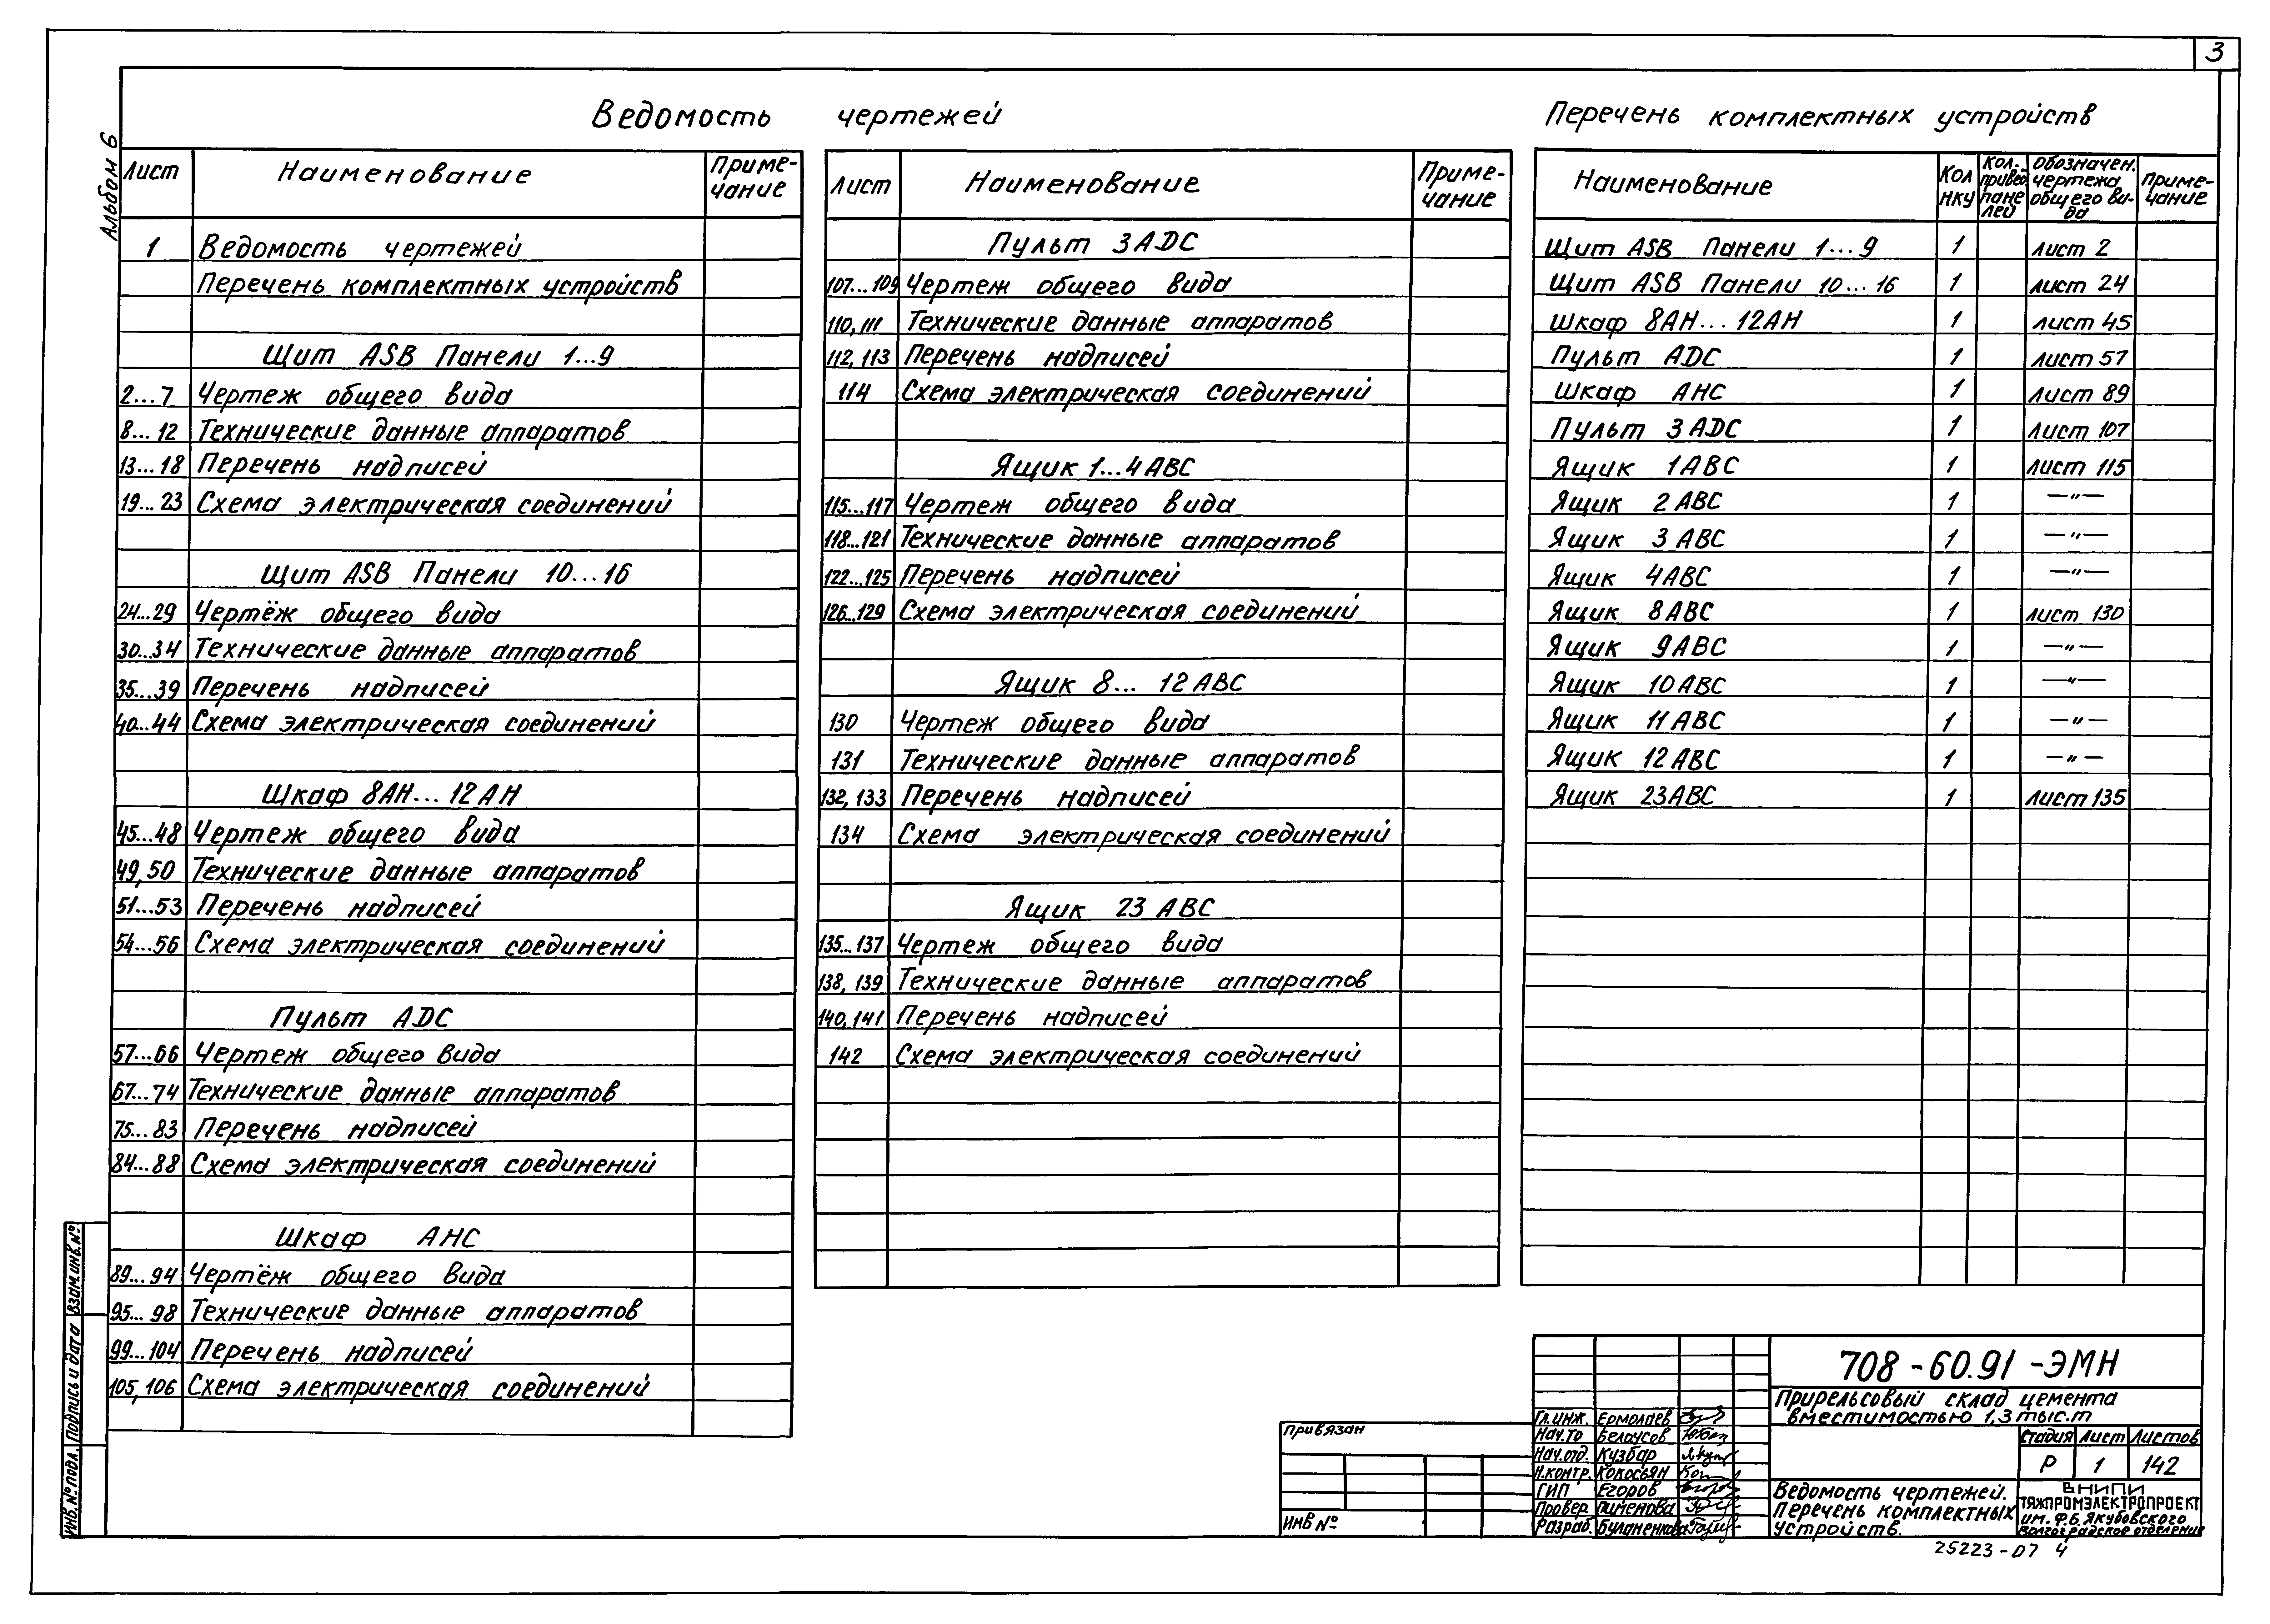 3
Альбом 6
Ведомость чертежей
Лист Наименование Приме-чание
1 Ведомость чертежей
Перечень комплектных устройств
Щит ASB Панели 1...9
2...7 Чертеж общего вида
8...12 Технические данные аппаратов
13...18 Перечень надписей
19...23 Схема электрическая соединений
Щит ASB Панели 10...16
24...29 Чертёж общего вида
30...34 Технические данные аппаратов
35...39 Перечень надписей
40...44 Схема электрическая соединений
Шкаф 8АН...12АН
45...48 Чертеж общего вида
49,50 Технические данные аппаратов
51...53 Перечень надписей
54...56 Схема электрическая соединений
Пульт ADC
57...66 Чертеж общего вида
67...74 Технические данные аппаратов
75...83 Перечень надписей
84...88 Схема электрическая соединений
Шкаф АНС
89...94 Чертёж общего вида
95...98 Технические данные аппаратов
99...104 Перечень надписей
105,106 Схема электрическая соединений
Лист Наименование Приме-чание
Пульт 3ADC
107...109 Чертеж общего вида
110,111 Технические данные аппаратов
112,113 Перечень надписей
114 Схема электрическая соединений
Ящик 1...4АВС
115...117 Чертеж общего вида
118...121 Технические данные аппаратов
122...125 Перечень надписей
126...129 Схема электрическая соединений
Ящик 8...12АВС
130 Чертеж общего вида
131 Технические данные аппаратов
132,133 Перечень надписей
134 Схема электрическая соединений
Ящик 23АВС
135...137 Чертеж общего вида
138,139 Технические данные аппаратов
140,141 Перечень надписей
142 Схема электрическая соединений
Перечень комплектных устройств
Наименование Кол НКУ Кол. привед. пане лей Обозначен. чертежа общего ви-да Приме-чание
Щит ASB Панели 1...9 1 лист 2
Щит ASB Панели 10...16 1 лист 24
Шкаф 8АН...12АН 1 лист 45
Пульт ADC 1 лист 57
Шкаф АНС 1 лист 89
Пульт 3ADC 1 лист 107
Ящик 1АВС 1 лист 115
Ящик 2АВС 1 —"—
Ящик 3АВС 1 —"—
Ящик 4АВС 1 —"—
Ящик 8АВС 1 лист 130
Ящик 9АВС 1 —"—
Ящик 10АВС 1 —"—
Ящик 11АВС 1 —"—
Ящик 12АВС 1 —"—
Ящик 23АВС 1 лист 135
Взам.инв.№
Подпись и дата
Инв.№подл.
Привязан
Инв №
708-60.91-ЭМН
Прирельсовый склад цемента
вместимостью 1,3 тыс.т
Гл.инж. Ермолаев
Нач.то Белоусов
Нач.отд. Кузбар
Н.контр.
ГИП Егоров
Провер. Пименова
Разраб. Буланенкова
Стадия Лист Листов
Р 1 142
Ведомость чертежей.
Перечень комплектных
устройств.
ВНИПИ
ТЯЖПРОМЭЛЕКТРОПРОЕКТ
им. Ф.Б.Якубовского
Волгоградское отделение
25223-07 4